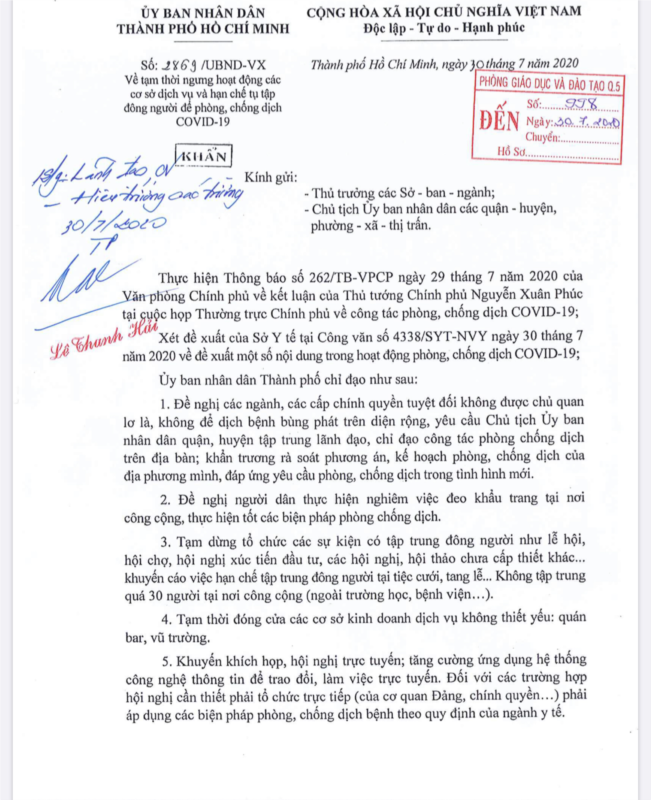 ỦY BAN NHÂN DÂN
THÀNH PHỐ HỒ CHÍ MINH
CỘNG HÒA XÃ HỘI CHỦ NGHĨA VIỆT NAM
Độc lập - Tự do - Hạnh phúc
Số: 2869/UBND-VX
Về tạm thời ngưng hoạt động các
cơ sở dịch vụ và hạn chế tụ tập
đông người để phòng, chống dịch
COVID-19
Thành phố Hồ Chí Minh, ngày 30 tháng 7 năm 2020
PHÒNG GIÁO DỤC VÀ ĐÀO TẠO Q.5
ĐẾN
Số: 998
Ngày: 30.7.2020
Chuyển:
Hồ Sơ
KHẨN
Lãnh đạo, CV
- Hiệu trưởng các trường
30/7/2020
TP
Lê Thanh Hải
Kính gửi:
- Thủ trưởng các Sở - ban - ngành;
- Chủ tịch Ủy ban nhân dân các quận - huyện,
phường - xã - thị trấn.
Thực hiện Thông báo số 262/TB-VPCP ngày 29 tháng 7 năm 2020 của
Văn phòng Chính phủ về kết luận của Thủ tướng Chính phủ Nguyễn Xuân Phúc
tại cuộc họp Thường trực Chính phủ về công tác phòng, chống dịch COVID-19;
Xét đề xuất của Sở Y tế tại Công văn số 4338/SYT-NVY ngày 30 tháng 7
năm 2020 về đề xuất một số nội dung trong hoạt động phòng, chống dịch COVID-19;
Ủy ban nhân dân Thành phố chỉ đạo như sau:
1. Đề nghị các ngành, các cấp chính quyền tuyệt đối không được chủ quan
lơ là, không để dịch bệnh bùng phát trên diện rộng, yêu cầu Chủ tịch Ủy ban
nhân dân quận, huyện tập trung lãnh đạo, chỉ đạo công tác phòng chống dịch
trên địa bàn; khẩn trương rà soát phương án, kế hoạch phòng, chống dịch của
địa phương mình, đáp ứng yêu cầu phòng, chống dịch trong tình hình mới.
2. Đề nghị người dân thực hiện nghiêm việc đeo khẩu trang tại nơi
công cộng, thực hiện tốt các biện pháp phòng chống dịch.
3. Tạm dừng tổ chức các sự kiện có tập trung đông người như lễ hội,
hội chợ, hội nghị xúc tiến đầu tư, các hội nghị, hội thảo chưa cấp thiết khác...
khuyến cáo việc hạn chế tập trung đông người tại tiệc cưới, tang lễ... Không tập trung
quá 30 người tại nơi công cộng (ngoài trường học, bệnh viện…).
4. Tạm thời đóng cửa các cơ sở kinh doanh dịch vụ không thiết yếu: quán
bar, vũ trường.
5. Khuyến khích họp, hội nghị trực tuyến; tăng cường ứng dụng hệ thống
công nghệ thông tin để trao đổi, làm việc trực tuyến. Đối với các trường hợp
hội nghị cần thiết phải tổ chức trực tiếp (của cơ quan Đảng, chính quyền…) phải
áp dụng các biện pháp phòng, chống dịch bệnh theo quy định của ngành y tế.